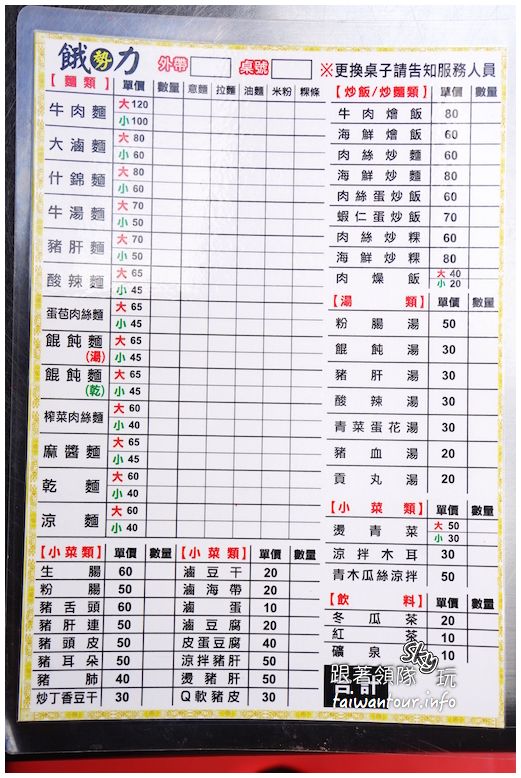 餓勢力 外帶 桌號 ※更換桌子請告知服務人員
【麵類】 單價 數量 意麵 拉麵 油麵 米粉 粿條
牛肉麵 大 120
小 100
大滷麵 大 80
小 60
什錦麵 大 80
小 60
牛湯麵 大 70
小 50
豬肝麵 大 70
小 50
酸辣麵 大 65
小 45
蛋苞肉絲麵 大 65
小 45
餛飩麵(湯) 大 65
小 45
餛飩麵(乾) 大 65
小 45
榨菜肉絲麵 大 60
小 40
麻醬麵 大 65
小 45
乾麵 大 60
小 40
涼麵 大 60
小 40
【小菜類】 單價 數量
生腸 60
粉腸 50
豬舌頭 60
豬肝連 50
豬頭皮 50
豬耳朵 50
豬肺 40
炒丁香豆干 30
【小菜類】 單價 數量
滷豆干 20
滷海帶 20
滷蛋 10
滷豆腐 20
皮蛋豆腐 40
涼拌豬肝 50
燙豬肝 50
Q軟豬皮 30
【炒飯/炒麵類】 單價 數量
牛肉燴飯 80
海鮮燴飯 60
肉絲炒麵 60
海鮮炒麵 80
肉絲蛋炒飯 60
蝦仁蛋炒飯 70
肉絲炒粿 60
海鮮炒粿 80
肉燥飯 大 40
小 20
【湯類】 單價 數量
粉腸湯 50
餛飩湯 30
豬肝湯 30
酸辣湯 30
青菜蛋花湯 30
豬血湯 20
貢丸湯 20
【小菜類】 單價 數量
燙青菜 大 50
小 30
涼拌木耳 30
青木瓜絲涼拌 50
【飲料】 單價 數量
冬瓜茶 20
紅茶 10
礦泉 10
合計
跟著領隊Sky玩
taiwantour.info